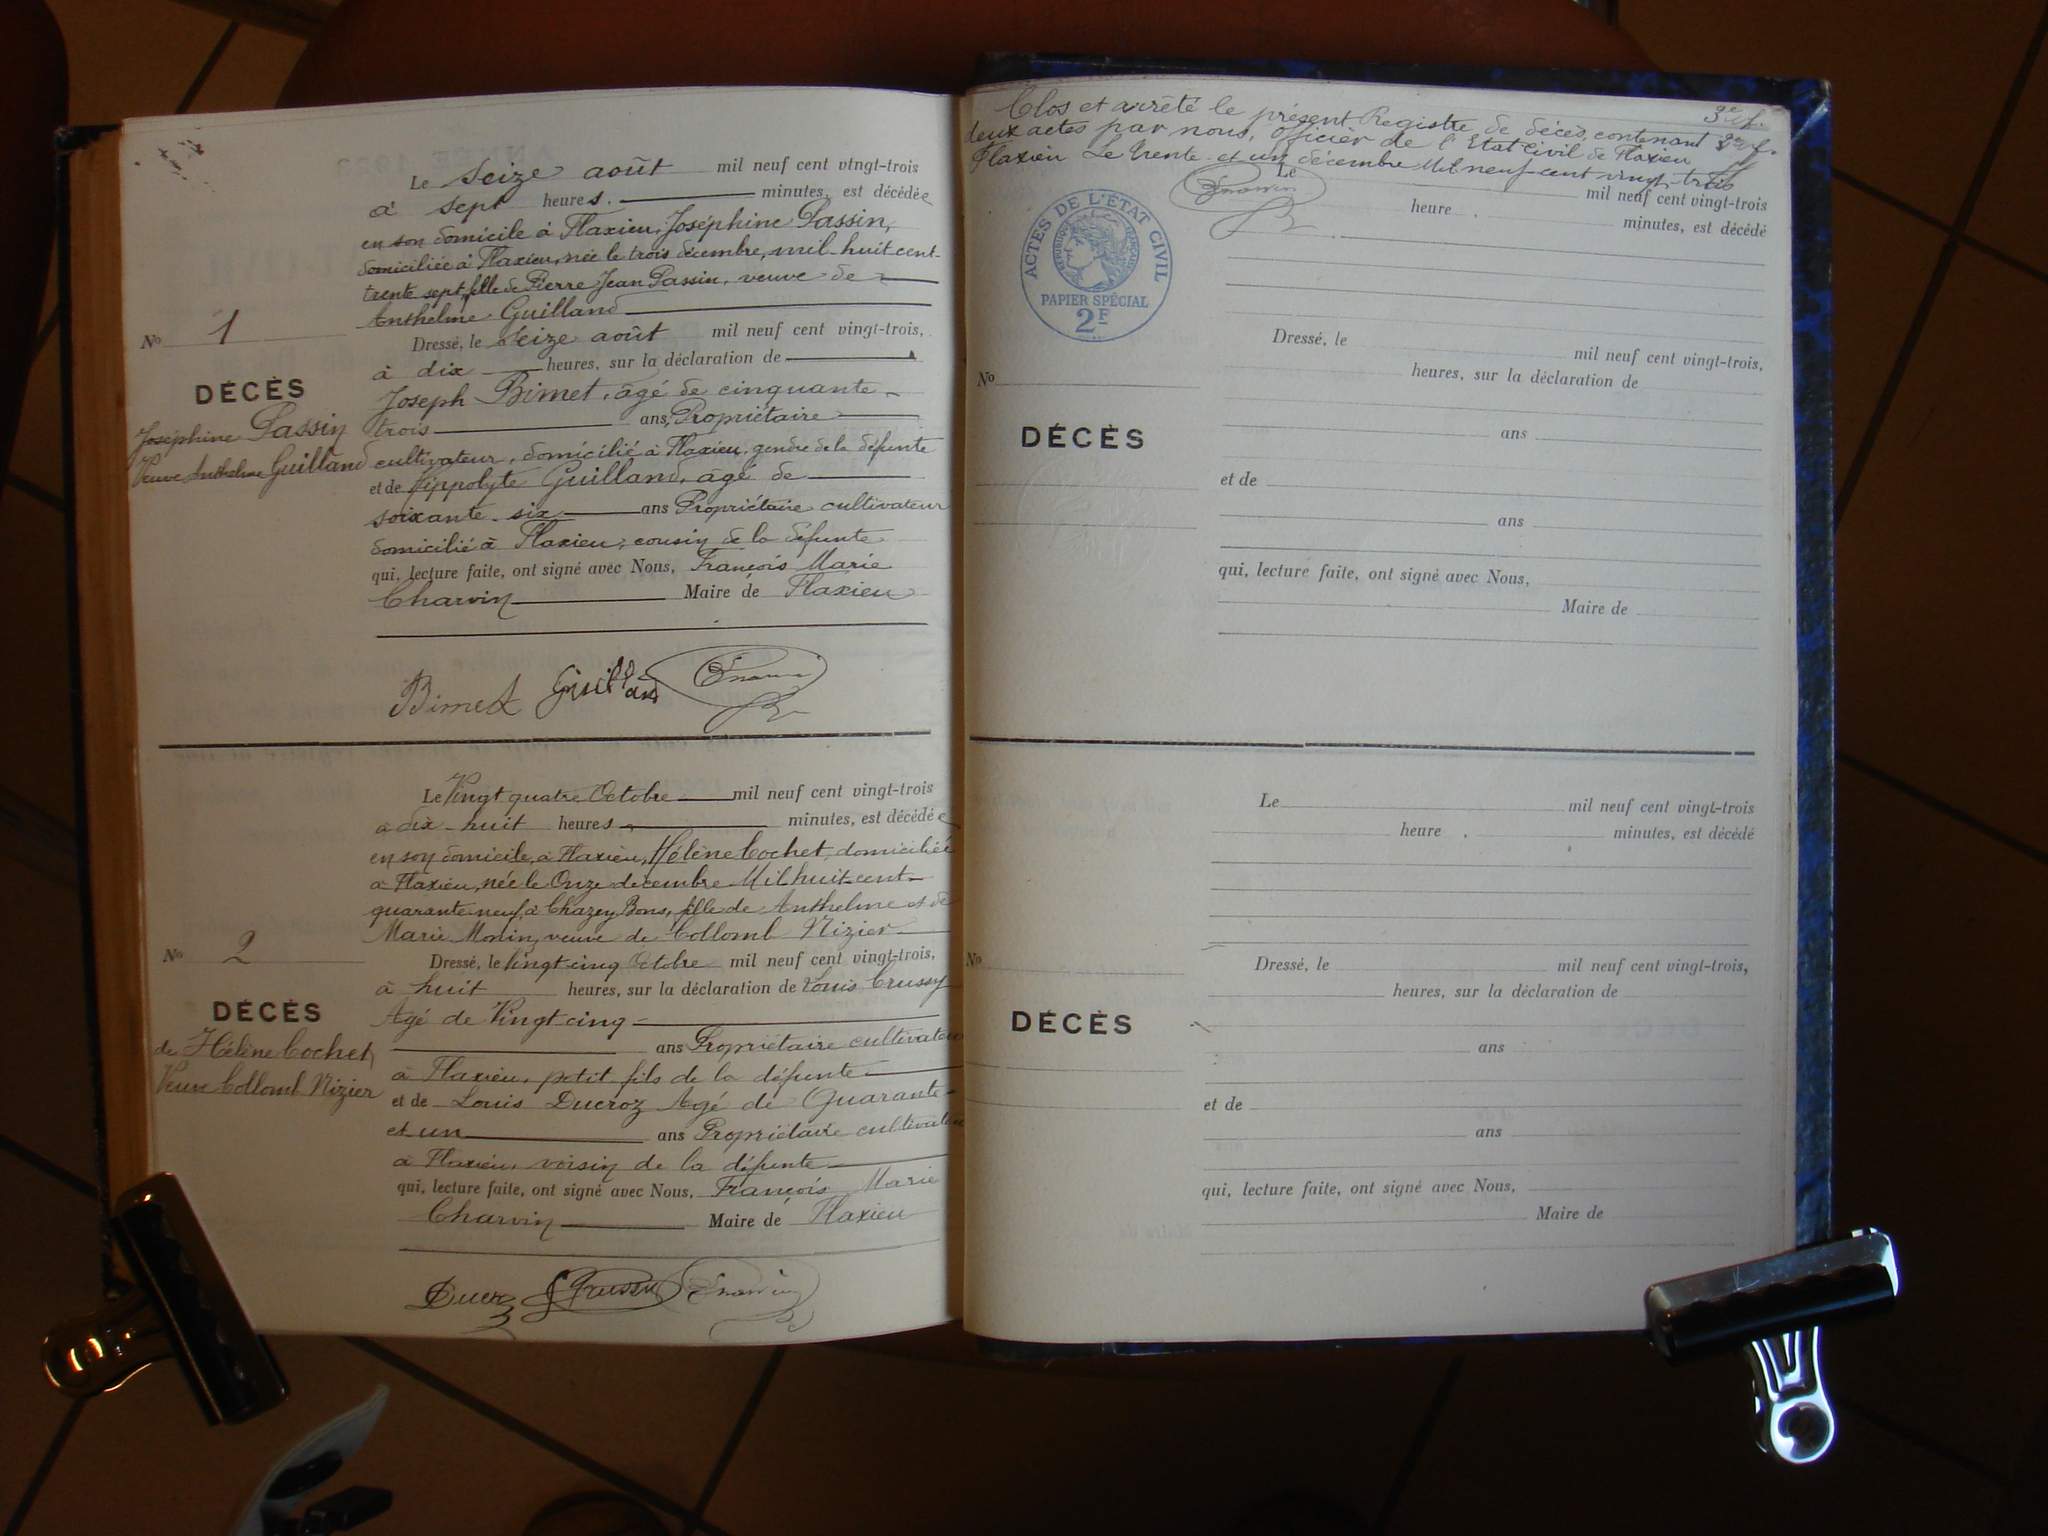 Le Seize août mil neuf cent vingt-trois
à sept heures. minutes, est décédée
en son domicile à Flaxieu, Joséphine Passin,
domiciliée à Flaxieu, née le trois décembre, mil-huit-cent-
trente sept, fille de Pierre Jean Passin, veuve de
Anthelme Guilland
No 1
Dressé, le Seize août mil neuf cent vingt-trois,
à dix heures, sur la déclaration de
DÉCÈS
Joseph Bimet, âgé de cinquante-
Joséphine Passin
trois ans, Propriétaire
Veuve Anthelme Guilland
cultivateur, domicilié à Flaxieu, gendre de la défunte
et de Hippolyte Guilland, âgé de
soixante-six ans Propriétaire cultivateur
domicilié à Flaxieu, cousin de la défunte
qui, lecture faite, ont signé avec Nous, François Marie
Charvin Maire de Flaxieu
Bimet Guilland
Le Vingt quatre Octobre mil neuf cent vingt-trois
à dix-huit heures minutes, est décédée
en son domicile, à Flaxieu, Hélène Cochet, domiciliée
à Flaxieu, née le Onze décembre Mil huit-cent-
quarante neuf, à Chazey Bons, fille de Anthelme et de
Marie Monin, veuve de Collomb Nizier
No 2
Dressé, le Vingt-cinq Octobre mil neuf cent vingt-trois,
à huit heures, sur la déclaration de Louis Crussy
DÉCÈS
Agé de Vingt-cinq-
de Hélène Cochet
ans Propriétaire cultivateur
Veuve Collomb Nizier
à Flaxieu, petit fils de la défunte
et de Louis Ducroz Agé de Quarante-
et un ans Propriétaire cultivateur
à Flaxieu, voisin de la défunte
qui, lecture faite, ont signé avec Nous, François Marie
Charvin Maire de Flaxieu
Ducroz
Clos et arrêté le présent Registre de décès, contenant
deux actes par nous, officier de l'Etat Civil de Flaxieu
Flaxieu Le trente-et un décembre Mil neuf-cent vingt-trois
Le mil neuf cent vingt-trois
heure minutes, est décédé
ACTES DE L'ÉTAT CIVIL
RÉPUBLIQUE FRANÇAISE
PAPIER SPÉCIAL
2F
Dressé, le mil neuf cent vingt-trois,
heures, sur la déclaration de
No
DÉCÈS
ans
et de
ans
qui, lecture faite, ont signé avec Nous,
Maire de
Le mil neuf cent vingt-trois
heure minutes, est décédé
No
Dressé, le mil neuf cent vingt-trois,
heures, sur la déclaration de
DÉCÈS
ans
et de
ans
qui, lecture faite, ont signé avec Nous,
Maire de